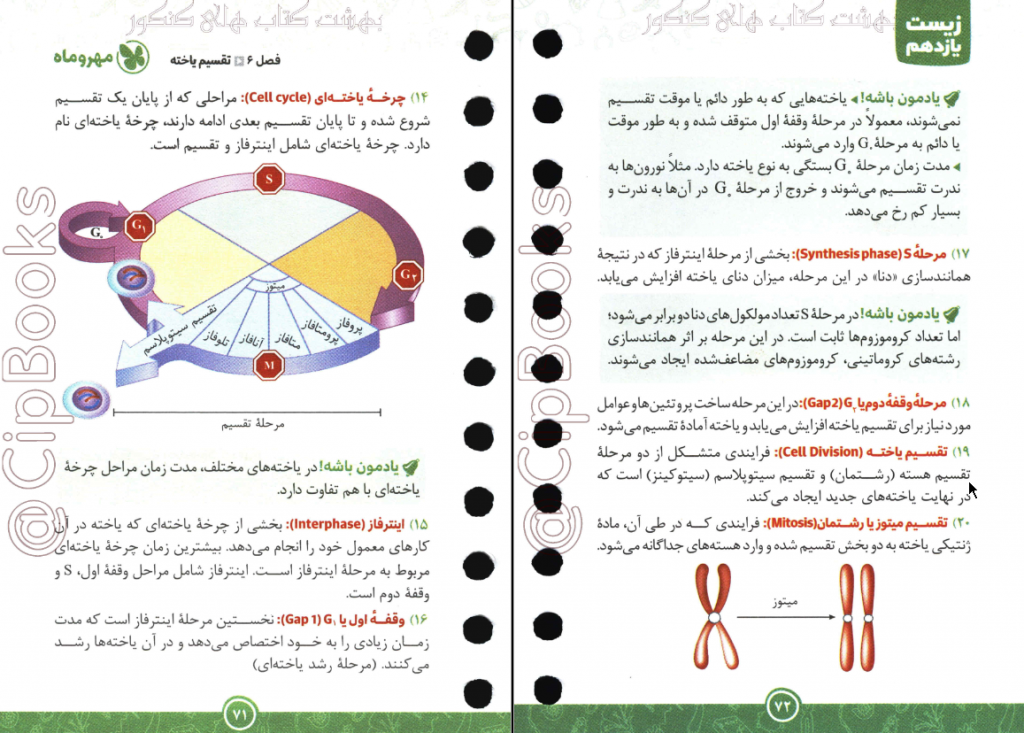 بهشت کتاب های کنکور
فصل ۶ تقسیم یاخته
مهروماه
۱۴) چرخهٔ یاخته‌ای (Cell cycle): مراحلی که از پایان یک تقسیم
شروع شده و تا پایان تقسیم بعدی ادامه دارند، چرخهٔ یاخته‌ای نام
دارد. چرخهٔ یاخته‌ای شامل اینترفاز و تقسیم است.
S
G۱
G۰
G۲
میتوز
پروفاز
پرومتافاز
متافاز
آنافاز
تلوفاز
تقسیم سیتوپلاسم
M
مرحلهٔ تقسیم
یادمون باشه! در یاخته‌های مختلف، مدت زمان مراحل چرخهٔ
یاخته‌ای با هم تفاوت دارد.
۱۵) اینترفاز (Interphase): بخشی از چرخهٔ یاخته‌ای که یاخته در آن
کارهای معمول خود را انجام می‌دهد. بیشترین زمان چرخهٔ یاخته‌ای
مربوط به مرحلهٔ اینترفاز است. اینترفاز شامل مراحل وقفهٔ اول، S و
وقفهٔ دوم است.
۱۶) وقفهٔ اول یا G۱ (Gap 1): نخستین مرحلهٔ اینترفاز است که مدت
زمان زیادی را به خود اختصاص می‌دهد و در آن یاخته‌ها رشد
می‌کنند. (مرحلهٔ رشد یاخته‌ای)
۷۱
@CipBooks
بهشت کتاب های کنکور
زیست
یازدهم
یادمون باشه! ◂ یاخته‌هایی که به طور دائم یا موقت تقسیم
نمی‌شوند، معمولاً در مرحلهٔ وقفهٔ اول متوقف شده و به طور موقت
یا دائم به مرحلهٔ G۰ وارد می‌شوند.
◂ مدت زمان مرحلهٔ G۰ بستگی به نوع یاخته دارد. مثلاً نورون‌ها به
ندرت تقسیم می‌شوند و خروج از مرحلهٔ G۰ در آن‌ها به ندرت و
بسیار کم رخ می‌دهد.
۱۷) مرحلهٔ S (Synthesis phase): بخشی از مرحلهٔ اینترفاز که در نتیجهٔ
همانندسازی «دنا» در این مرحله، میزان دنای یاخته افزایش می‌یابد.
یادمون باشه! در مرحلهٔ S تعداد مولکول‌های دنا دو برابر می‌شود؛
اما تعداد کروموزوم‌ها ثابت است. در این مرحله بر اثر همانندسازی
رشته‌های کروماتینی، کروموزوم‌های مضاعف‌شده ایجاد می‌شوند.
۱۸) مرحلهٔ وقفهٔ دوم یا G۲ (Gap2): در این مرحله ساخت پروتئین‌ها و عوامل
مورد نیاز برای تقسیم یاخته افزایش می‌یابد و یاخته آمادهٔ تقسیم می‌شود.
۱۹) تقسیم یاخته (Cell Division): فرایندی متشکل از دو مرحلهٔ
تقسیم هسته (رشتمان) و تقسیم سیتوپلاسم (سیتوکینز) است که
در نهایت یاخته‌های جدید ایجاد می‌کند.
۲۰) تقسیم میتوز یا رشتمان (Mitosis): فرایندی که در طی آن، مادهٔ
ژنتیکی یاخته به دو بخش تقسیم شده و وارد هسته‌های جداگانه می‌شود.
میتوز
۷۲
@CipBooks